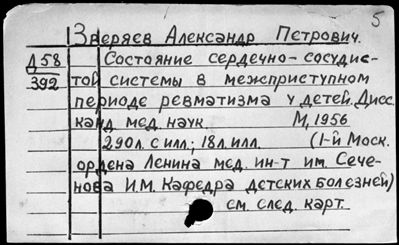 5
Зверяев Александр Петрович.
Д58
392
Состояние сердечно-сосудис-
той системы в межприступном
периоде ревматизма у детей. Дисс.
канд мед. наук. М, 1956
290л. с илл.; 18л. илл. (1-й Моск.
ордена Ленина мед. ин-т им. Сече-
нова И.М. Кафедра детских болезней)
см. след. карт.